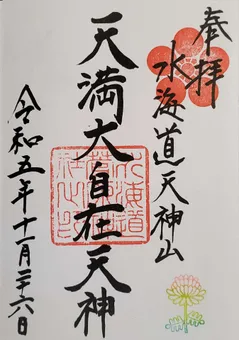 奉拝
水海道天神山
天満大自在天神
令和五年十一月二十六日